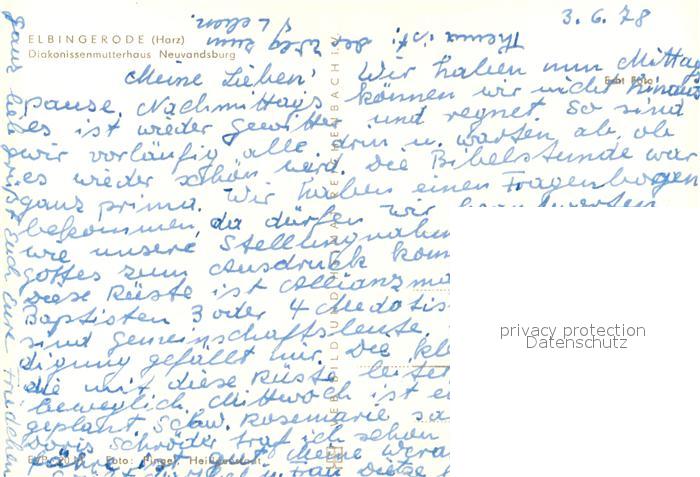 3. 6. 78
ELBINGERODE (Harz)
Diakonissenmutterhaus Neuvandsburg
Echt Foto
Meine Lieben! Wir haben nun Mittags
pause. Nachmittags können wir nicht hinaus
es ist wieder Gewitter und regnet. So sind
wir vorläufig alle drin u. warten ab, ob
es wieder schön wird. Die Bibelstunde war
ganz prima. Wir haben einen Fragenbogen
bekommen, da dürfen wir beantworten
wie unsere Stellungnahm
Gottes zum Ausdruck kom
Diese Rüste ist Allianzmä
Baptisten 3 oder 4 Metodis
sind Gemeinschaftsleute.
digung gefällt mir. Die kle
die mit diese Rüste leitet
beweglich. Mittwoch ist e
geplant. Schw. Rosemarie sa
Doris Schröder traf ich schon
Thema ist: der Weg zum
Leben.
Ganz lieb grüßt Euch Eure Friedchen
privacy protection
Datenschutz